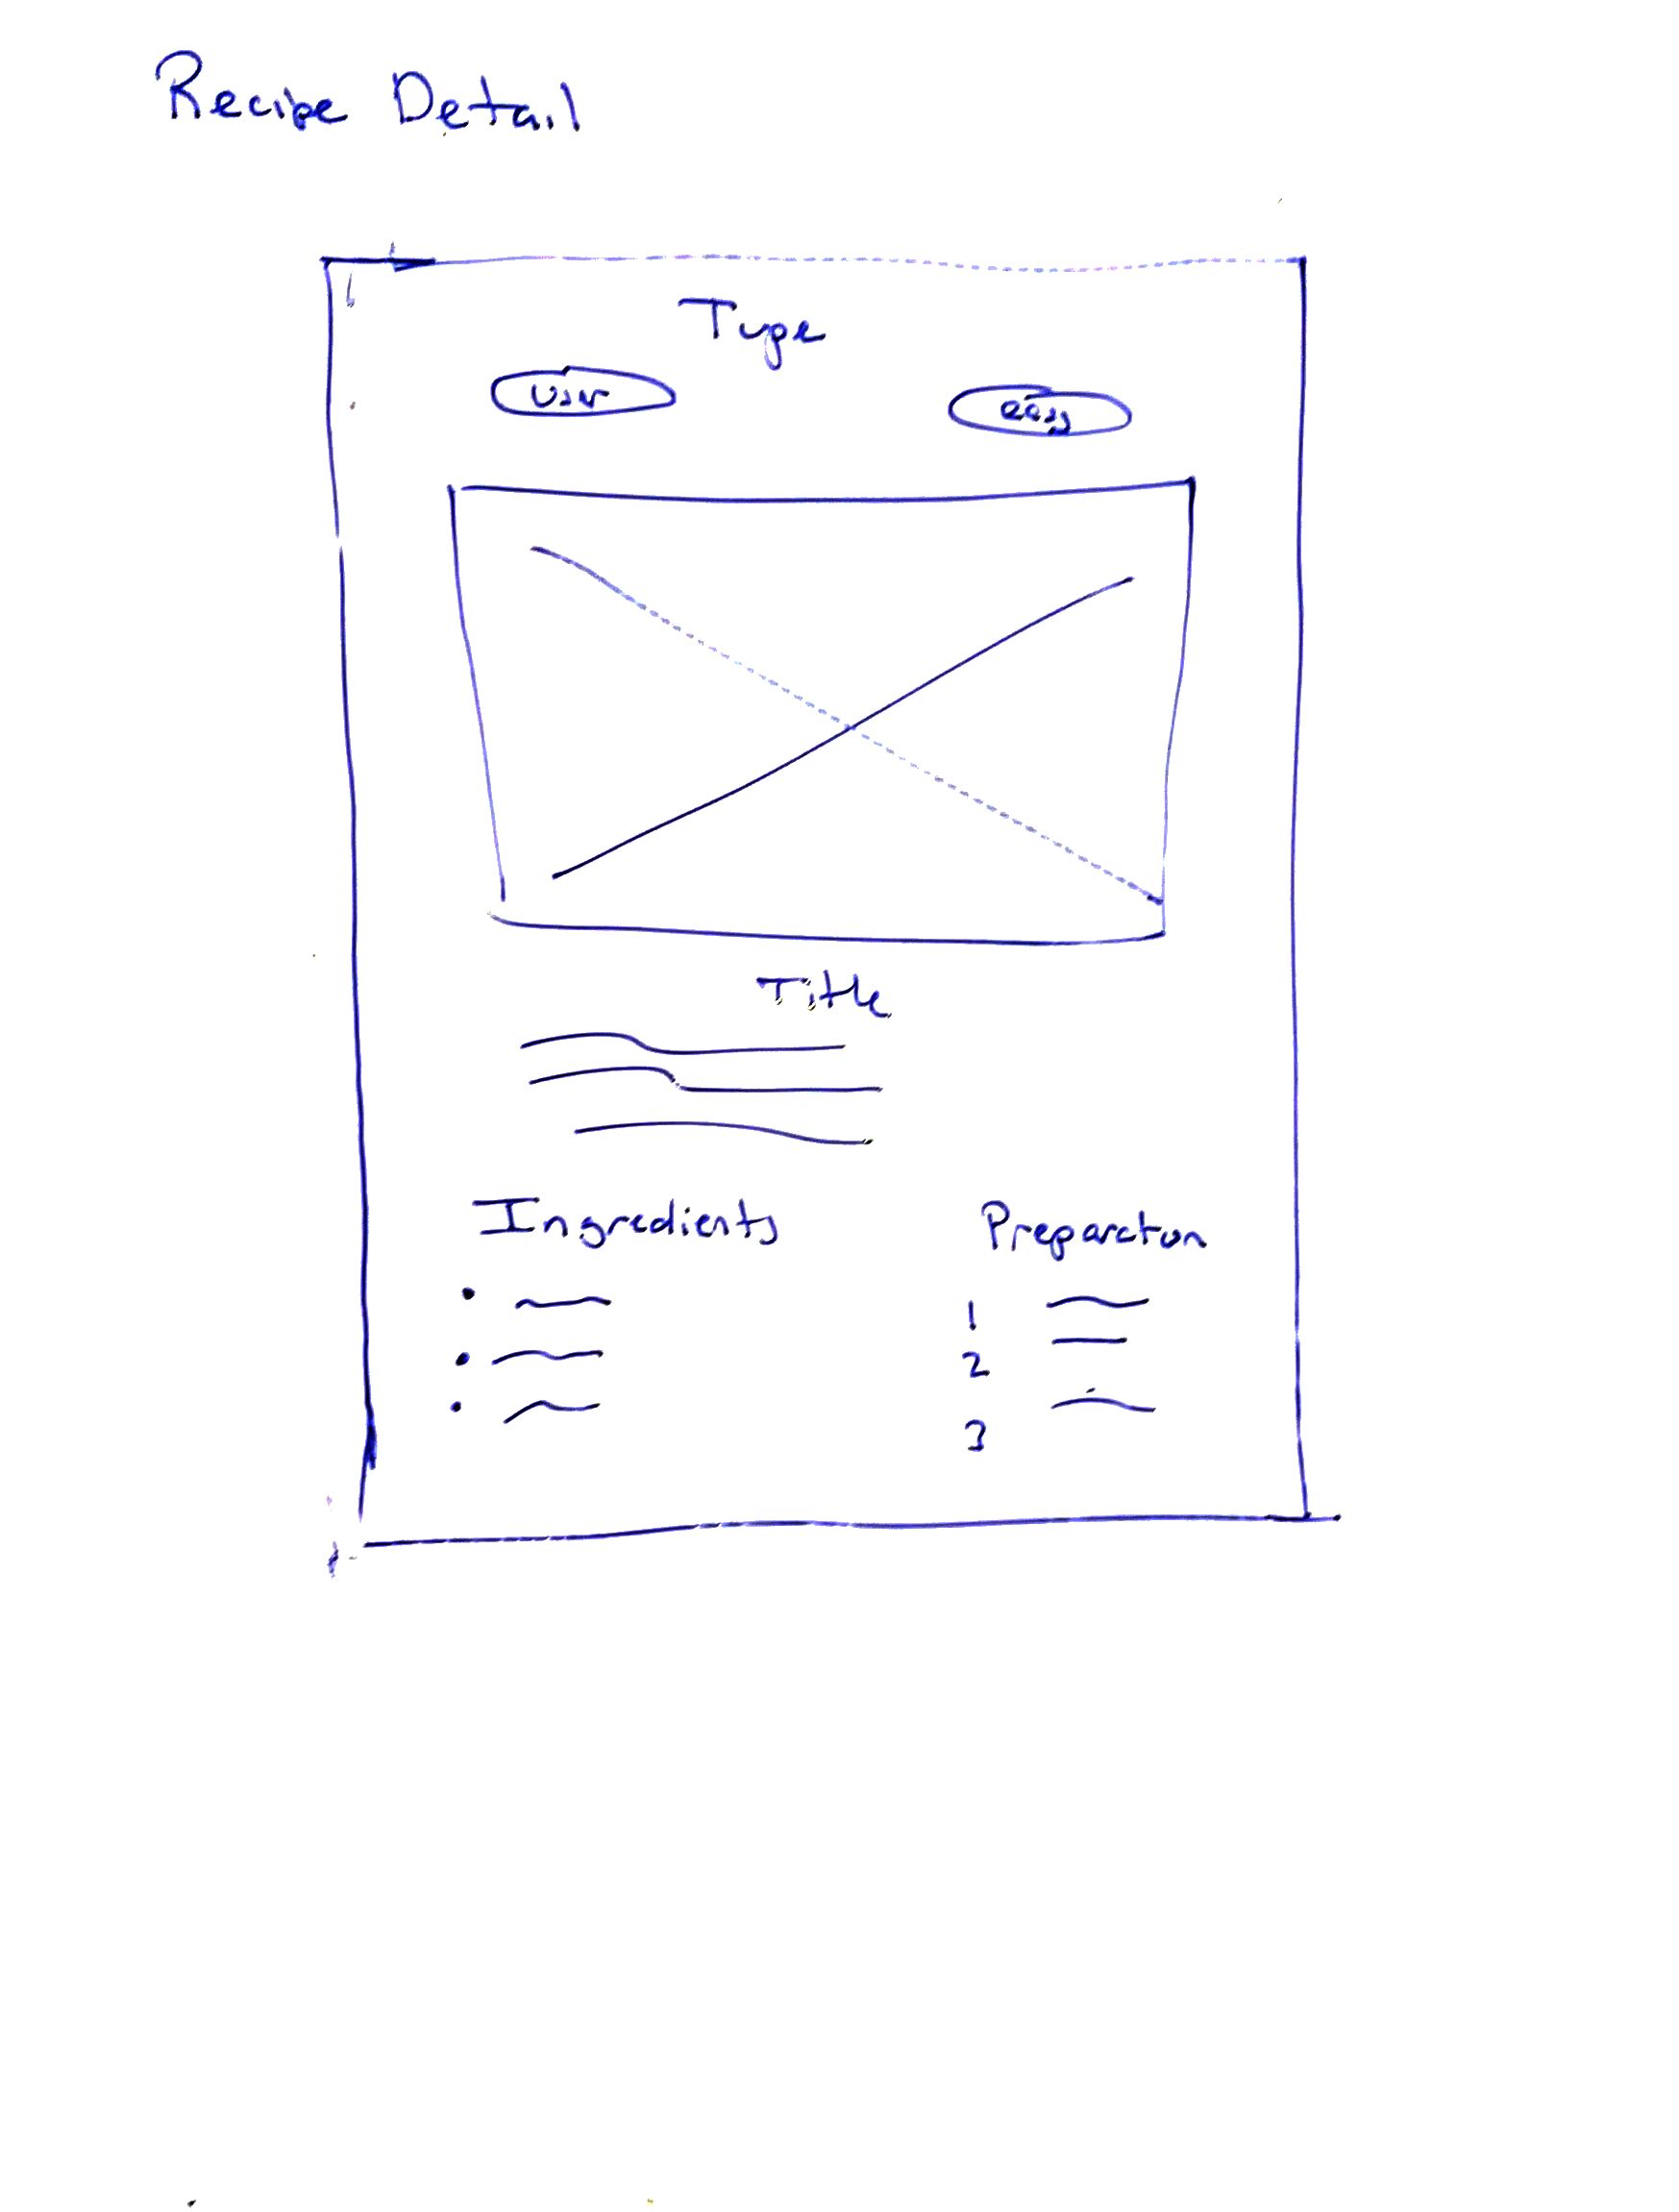 Recipe Detail
Type
User
easy
Title
Ingredients
Preparation
1
2
3